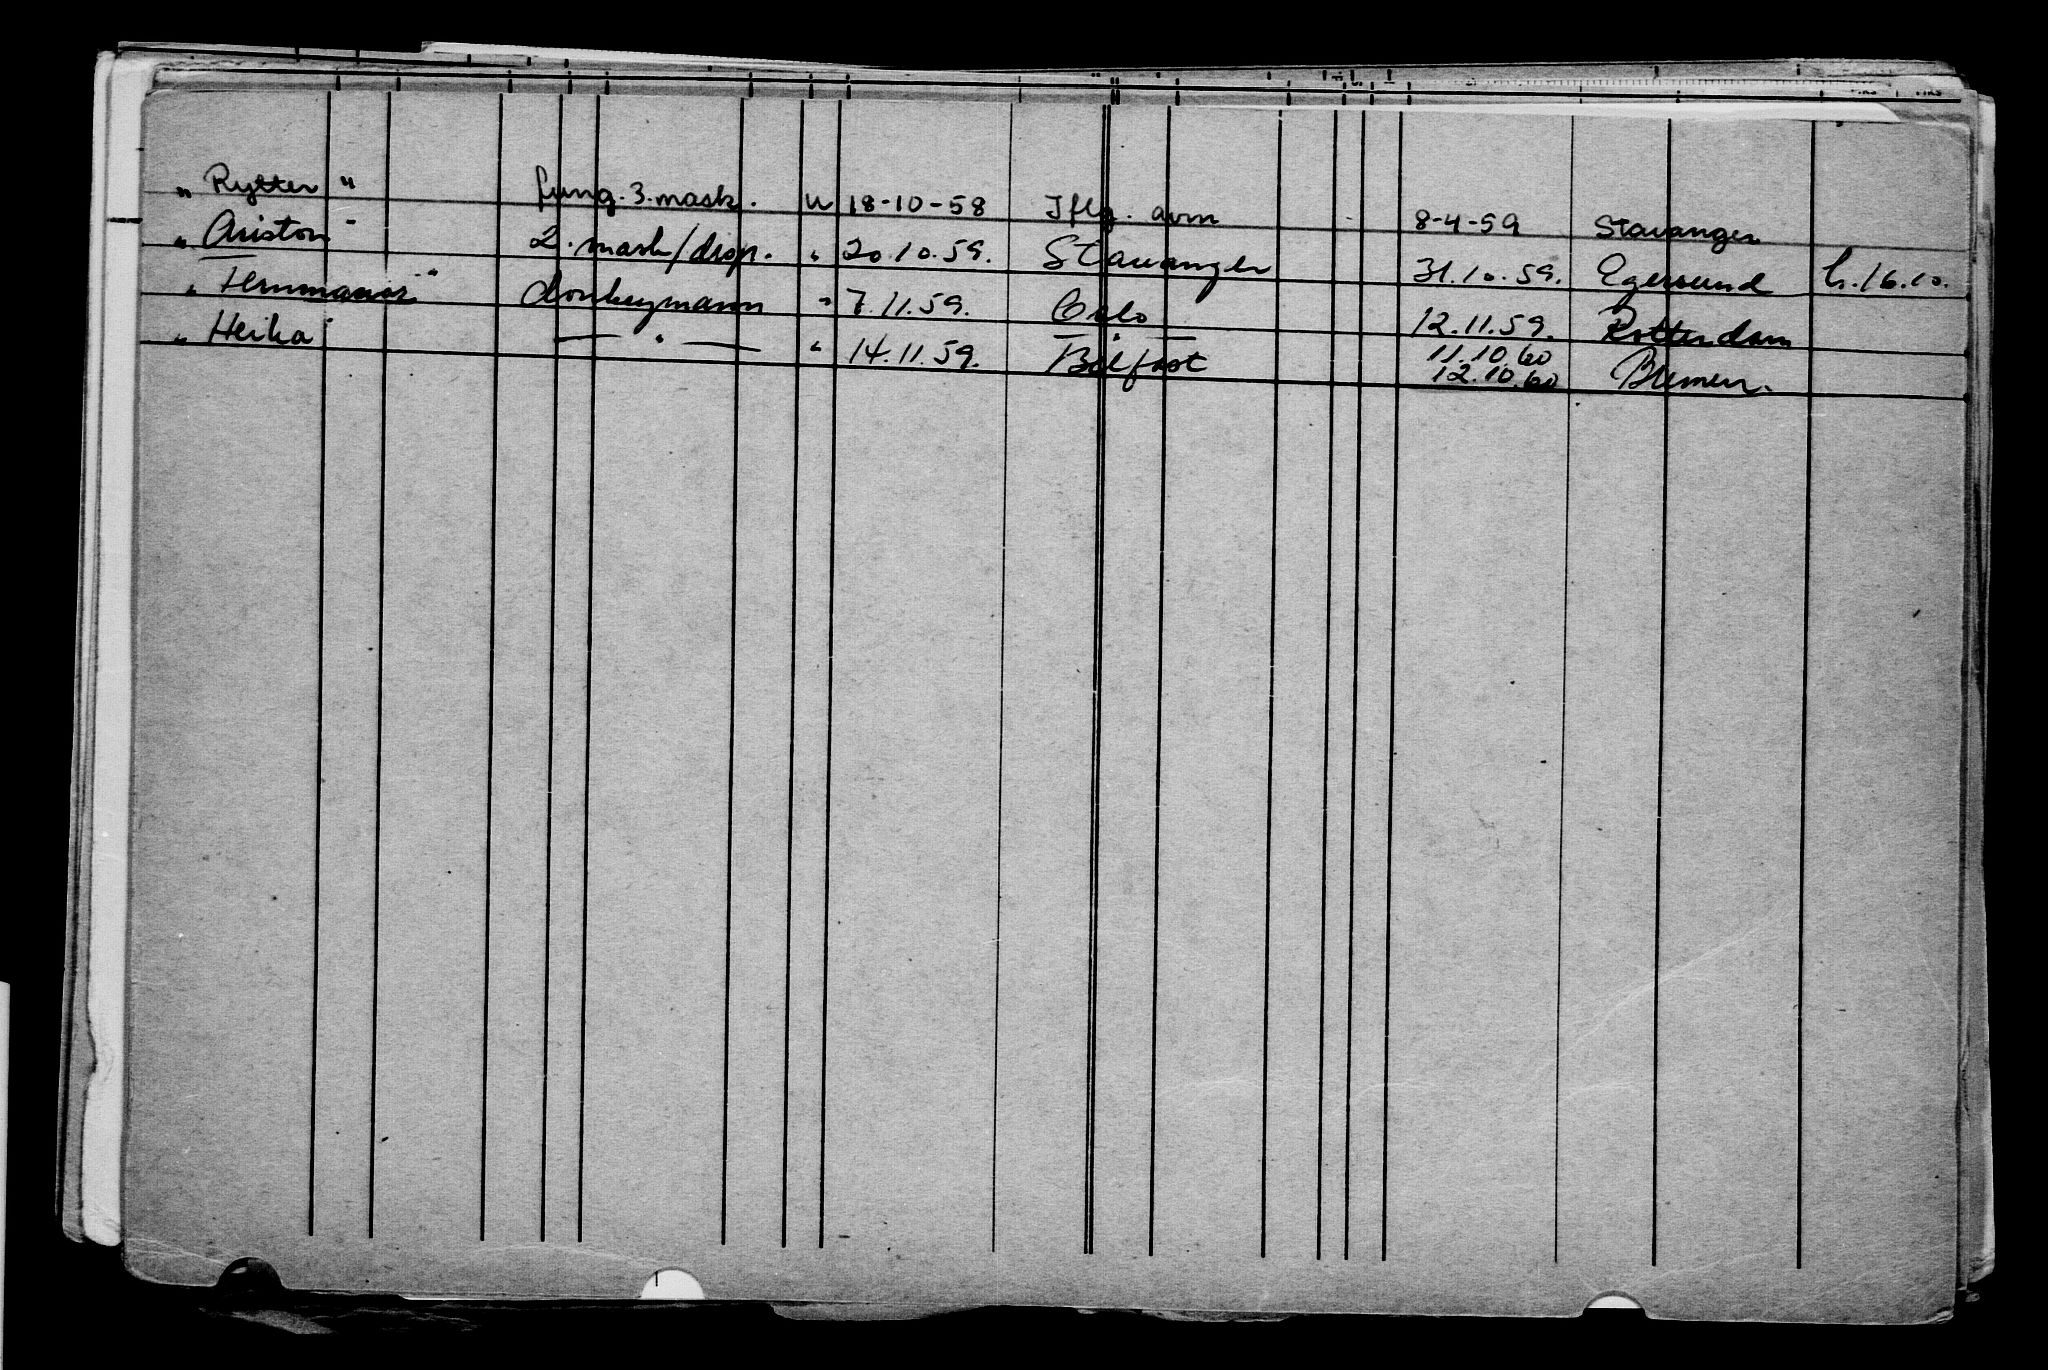 „ Rytter " fung. 3. mask. u 18-10-58 Iflg. avm 8-4-59 Stavanger
„ Ariston " 2. mask/disp. " 20.10.59. Stavanger 31.10.59. Egersund h.16.10.
„ " donkeymann " 7.11.59. Oslo 12.11.59. Rotterdam
„ Heika " — " — " 14.11.59. Belfast 11.10.60 12.10.60 Bremen.